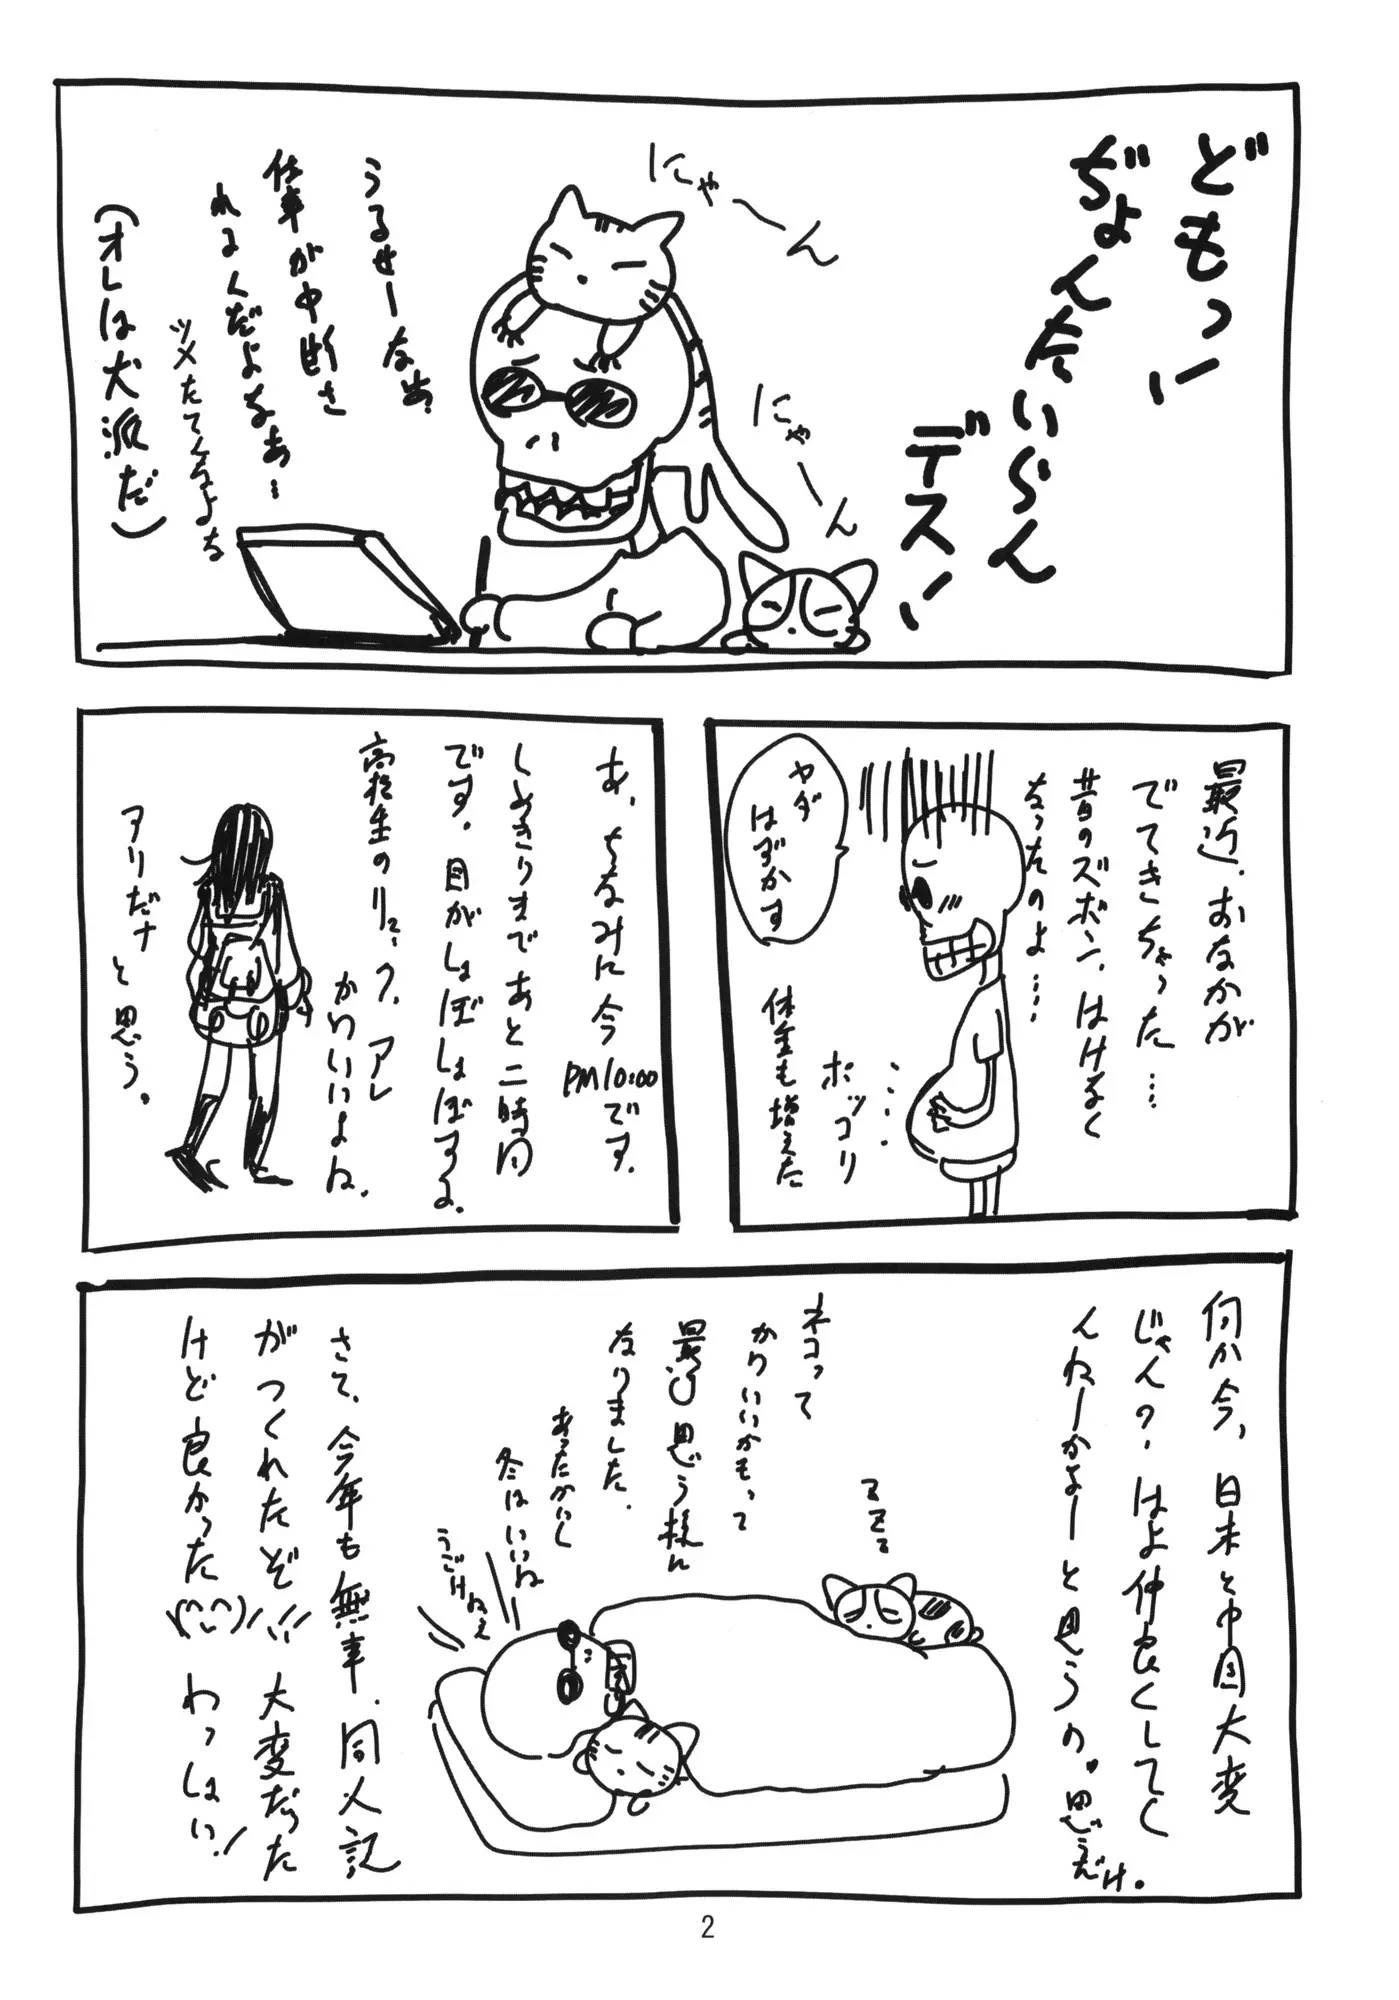 どもっ!
ぢょんたいらん
デス!
にゃーん
にゃーん
うるせーなあ、
仕事が中断さ
れるんだよなあ…
ツメたてんなよな
(オレは犬派だ)
最近、おなかが
でてきちゃった…
昔のズボン、はけなく
なったのよ…
ヤダ
はずかす
ポッコリ
体重も増えた
あ、ちなみに今
PM10:00です。
しめきりまであと二時間
です。目がしょぼしょぼする。
高校生のリュック、アレ
かわいいよね。
アリだナ
と思う。
何か今、日本と中国大変
じゃん?はよ仲良くしてく
んねーかなーと思うの。思うだけ。
ネコって
かわいいかもって
最近思う様に
なりました。
あったかいし
冬はいいね
うごけねえ
さて、今年も無事、同人記
がつくれたぞ!!大変だった
けど良かった(^-^)/わっしょい!
2